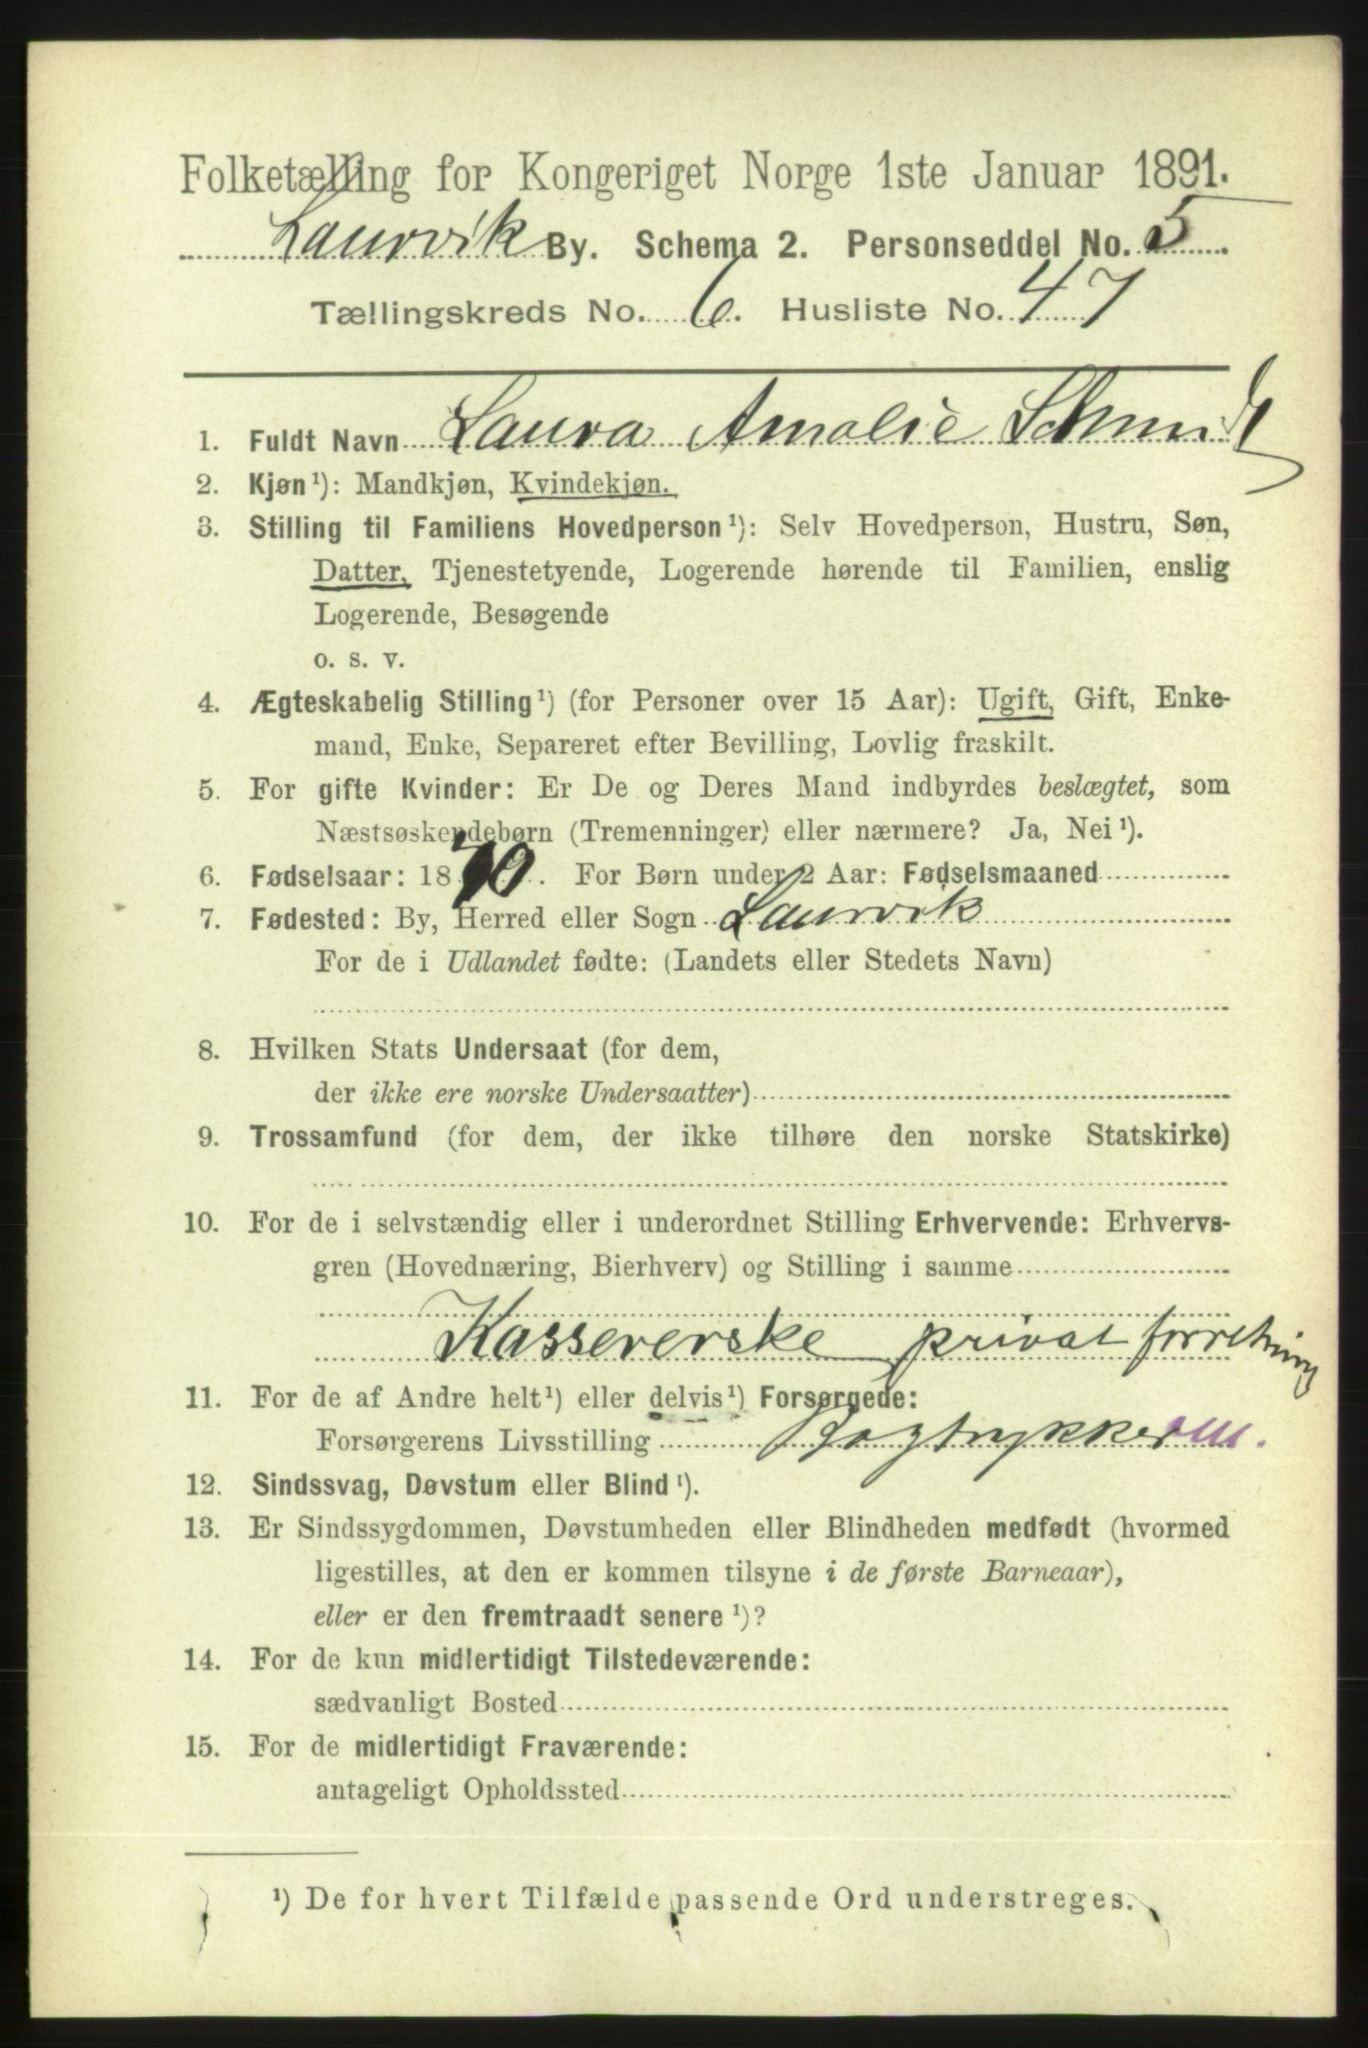 Folketælling for Kongeriget Norge 1ste Januar 1891.
Laurvik By. Schema 2. Personseddel No. 5
Tællingskreds No. 6. Husliste No. 47
1. Fuldt Navn Laura Amalie Schmidt
2. Kjøn¹): Mandkjøn, Kvindekjøn.
3. Stilling til Familiens Hovedperson¹): Selv Hovedperson, Hustru, Søn,
Datter, Tjenestetyende, Logerende hørende til Familien, enslig
Logerende, Besøgende
o. s. v.
4. Ægteskabelig Stilling¹) (for Personer over 15 Aar): Ugift, Gift, Enke-
mand, Enke, Separeret efter Bevilling, Lovlig fraskilt.
5. For gifte Kvinder: Er De og Deres Mand indbyrdes beslægtet, som
Næstsøskendebørn (Tremenninger) eller nærmere? Ja, Nei¹).
6. Fødselsaar: 1870. For Børn under 2 Aar: Fødselsmaaned
7. Fødested: By, Herred eller Sogn Laurvik
For de i Udlandet fødte: (Landets eller Stedets Navn)
8. Hvilken Stats Undersaat (for dem,
der ikke ere norske Undersaatter)
9. Trossamfund (for dem, der ikke tilhøre den norske Statskirke)
10. For de i selvstændig eller i underordnet Stilling Erhvervende: Erhvervs-
gren (Hovednæring, Bierhverv) og Stilling i samme
Kassererske privat forretning
11. For de af Andre helt¹) eller delvis¹) Forsørgede:
Forsørgerens Livsstilling Bogtrykker m.
12. Sindssvag, Døvstum eller Blind¹).
13. Er Sindssygdommen, Døvstumheden eller Blindheden medfødt (hvormed
ligestilles, at den er kommen tilsyne i de første Barneaar),
eller er den fremtraadt senere¹)?
14. For de kun midlertidigt Tilstedeværende:
sædvanligt Bosted
15. For de midlertidigt Fraværende:
antageligt Opholdssted
¹) De for hvert Tilfælde passende Ord understreges.